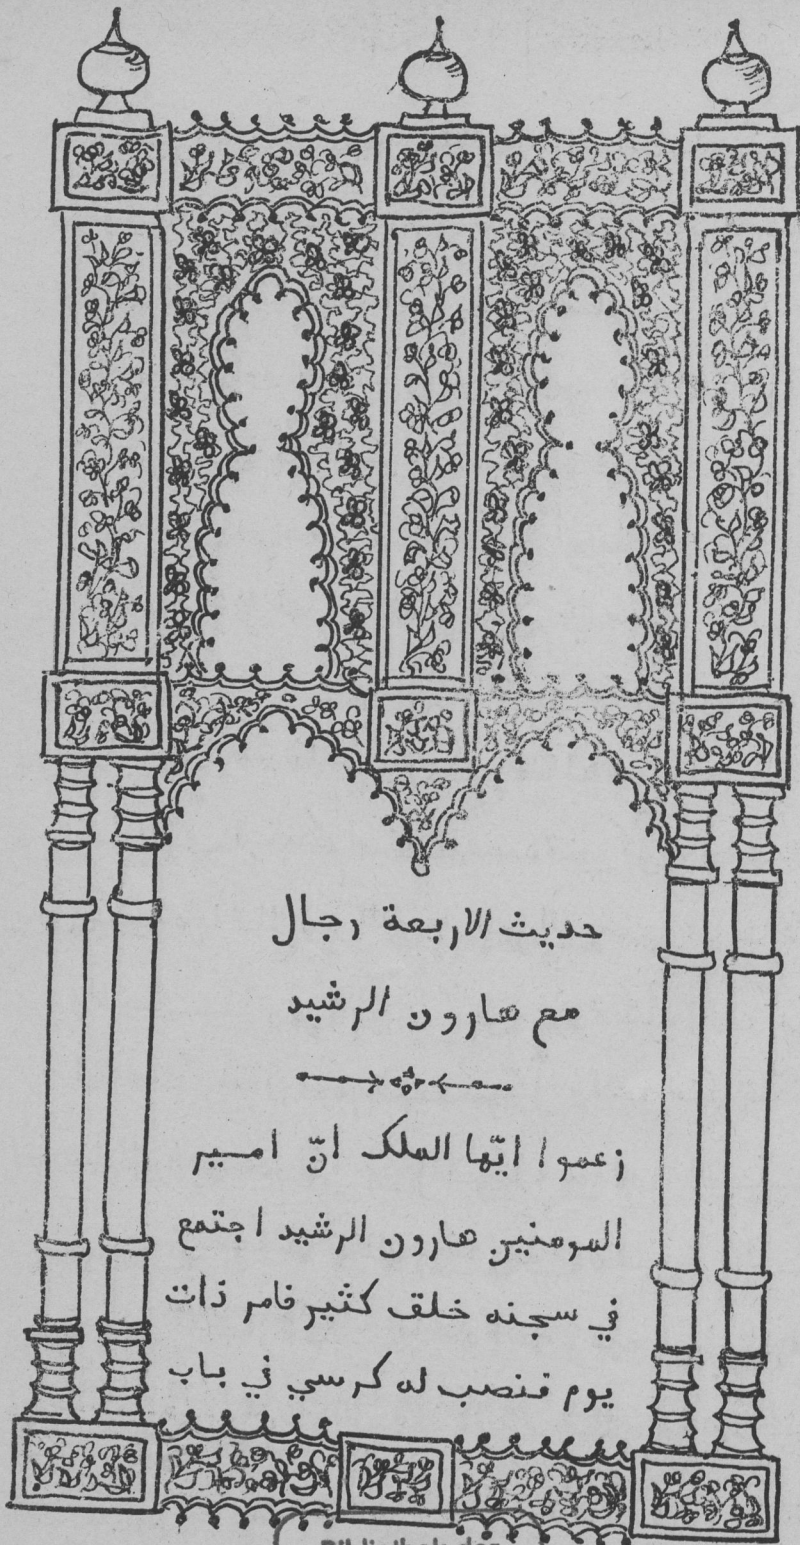 حديث الاربعة رجال
مع هارون الرشيد
زعموا ايّها الملك انّ امير
المومنين هارون الرشيد اجتمع
في سجنه خلق كثير فامر ذات
يوم فنصب له كرسي في باب